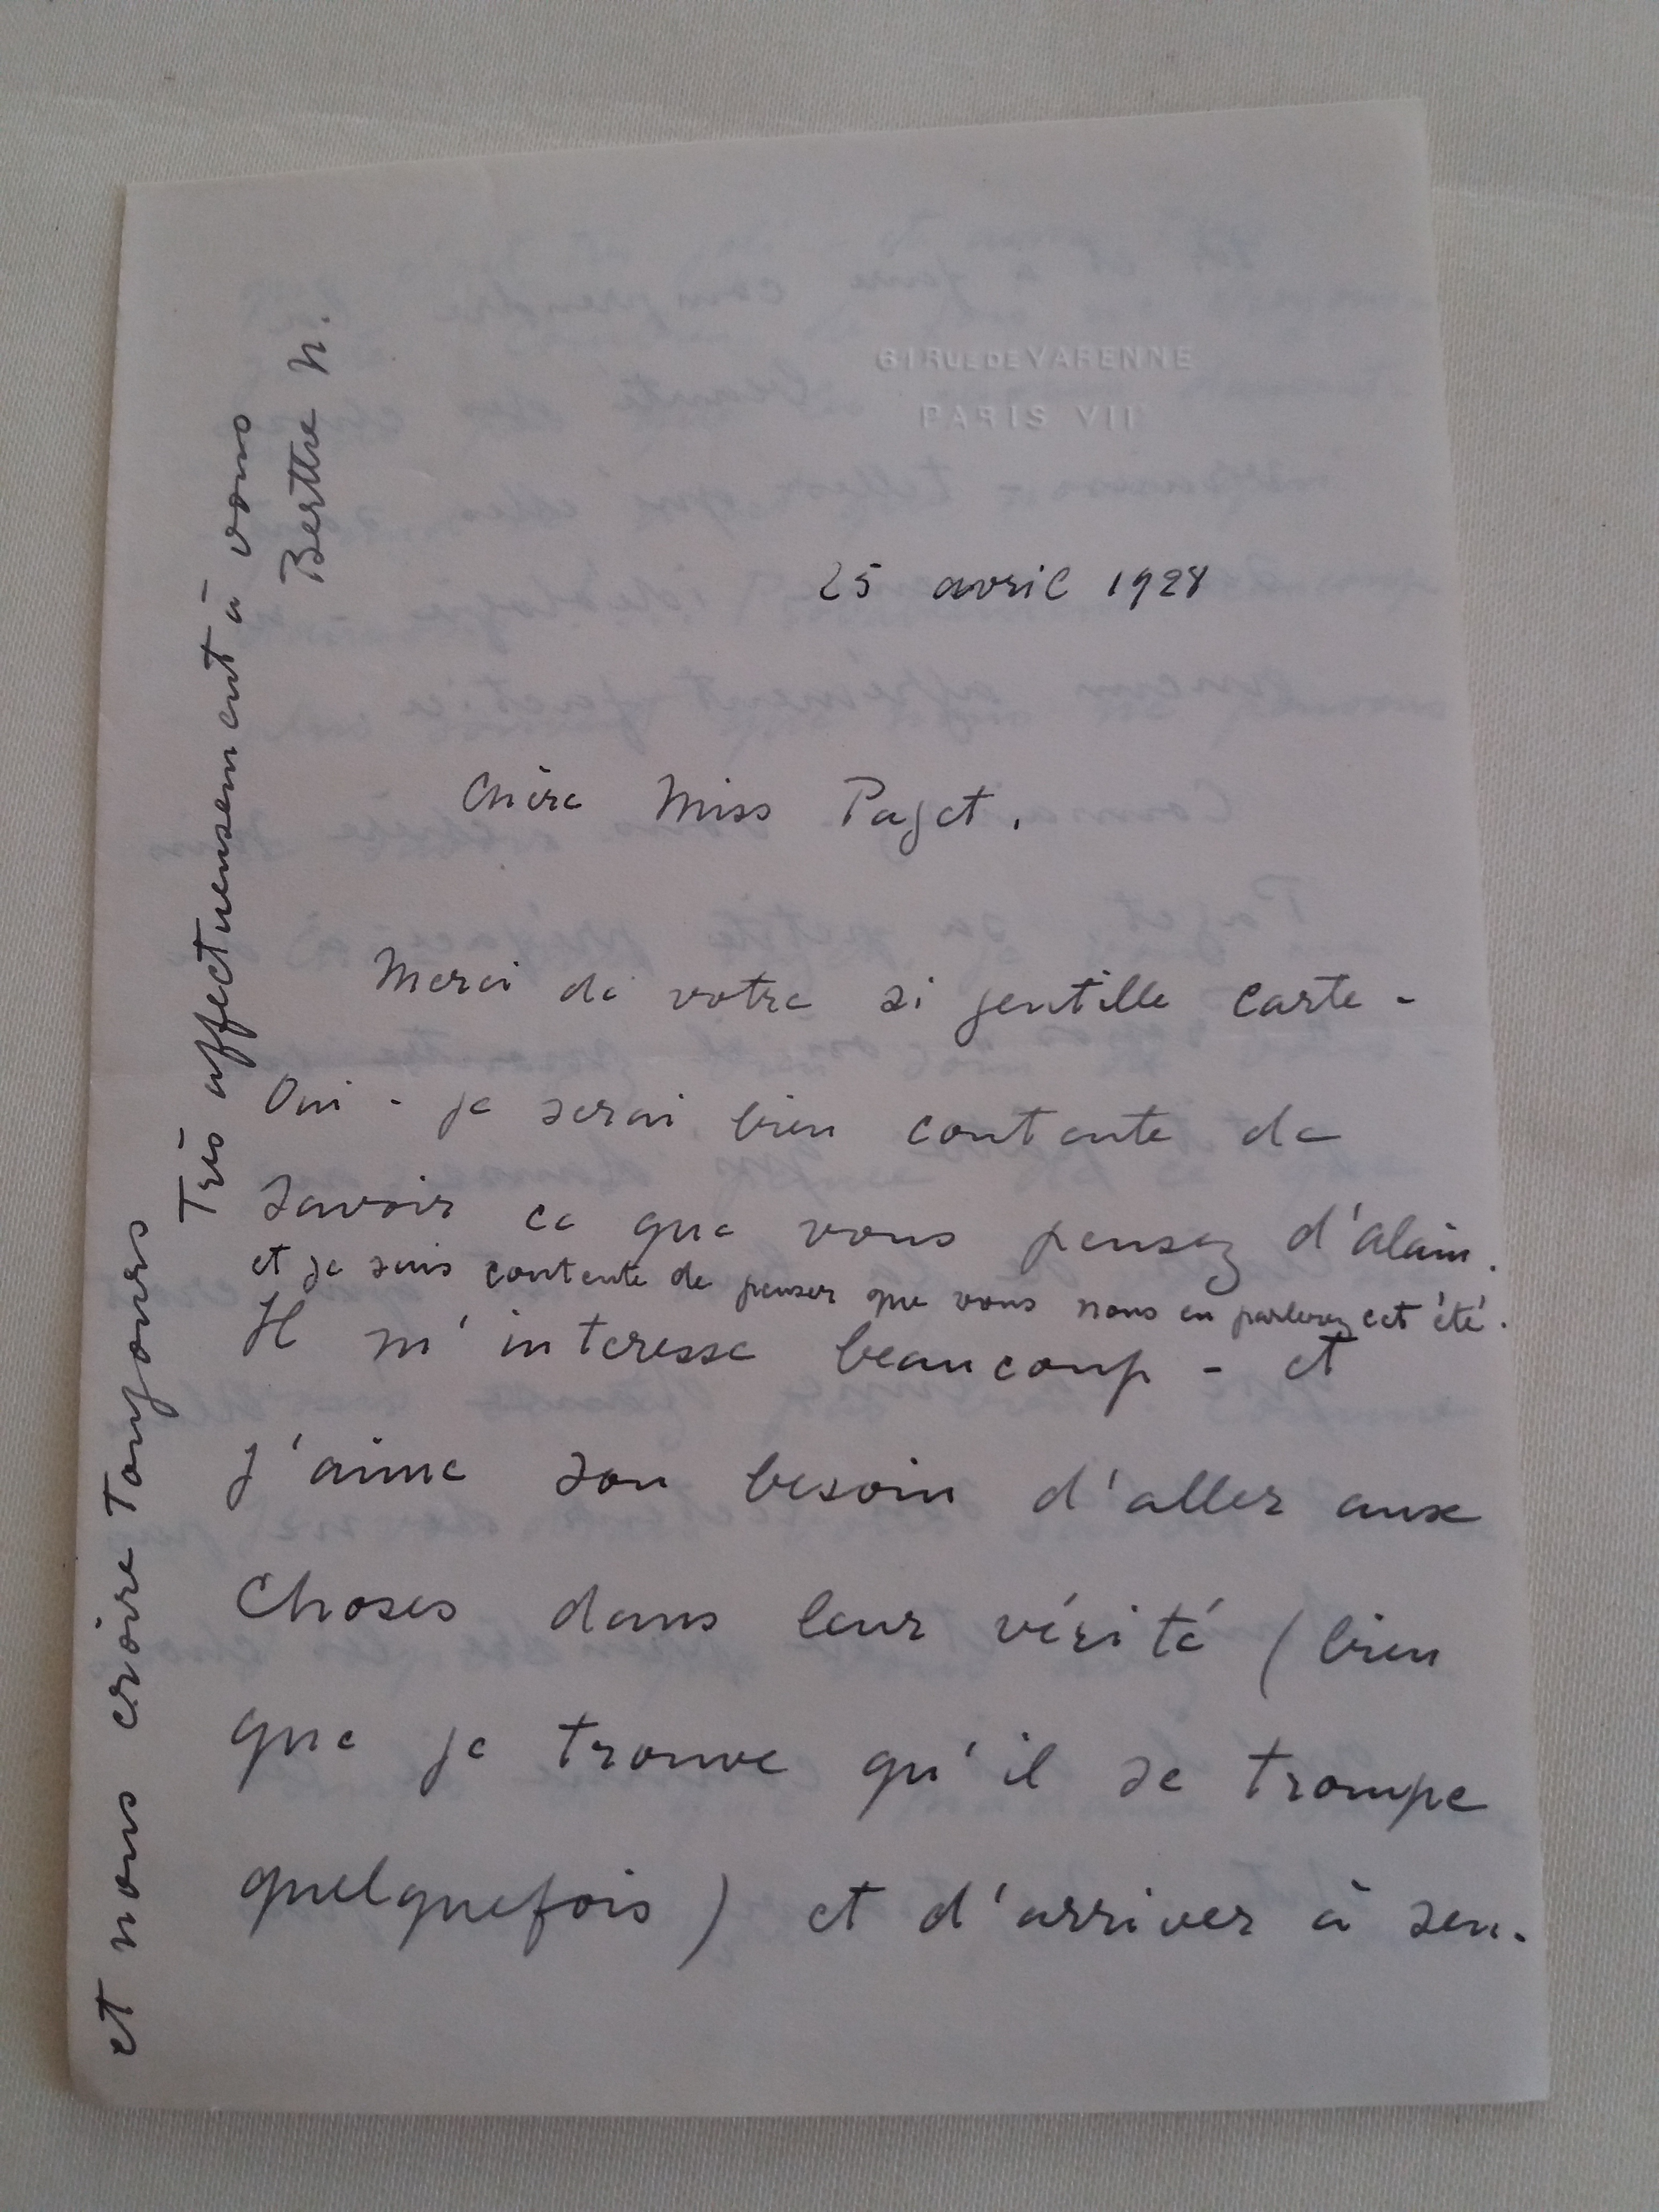 61 RUE DE VARENNE
PARIS VIIe
25 avril 1928
Chère Miss Paget.
Merci de votre si gentille carte -
Oui - je serai bien contente de
savoir ce que vous pensez d'alain.
et je suis contente de penser que vous nous en parlerez cet été.
Il m'interesse beaucoup - et
j'aime son besoin d'aller aux
choses dans leur vérité (bien
que je trouve qu'il se trompe
quelquefois) et d'arriver à sen-
et nous croire toujours
Très affectueusement à vous
Berthe N.